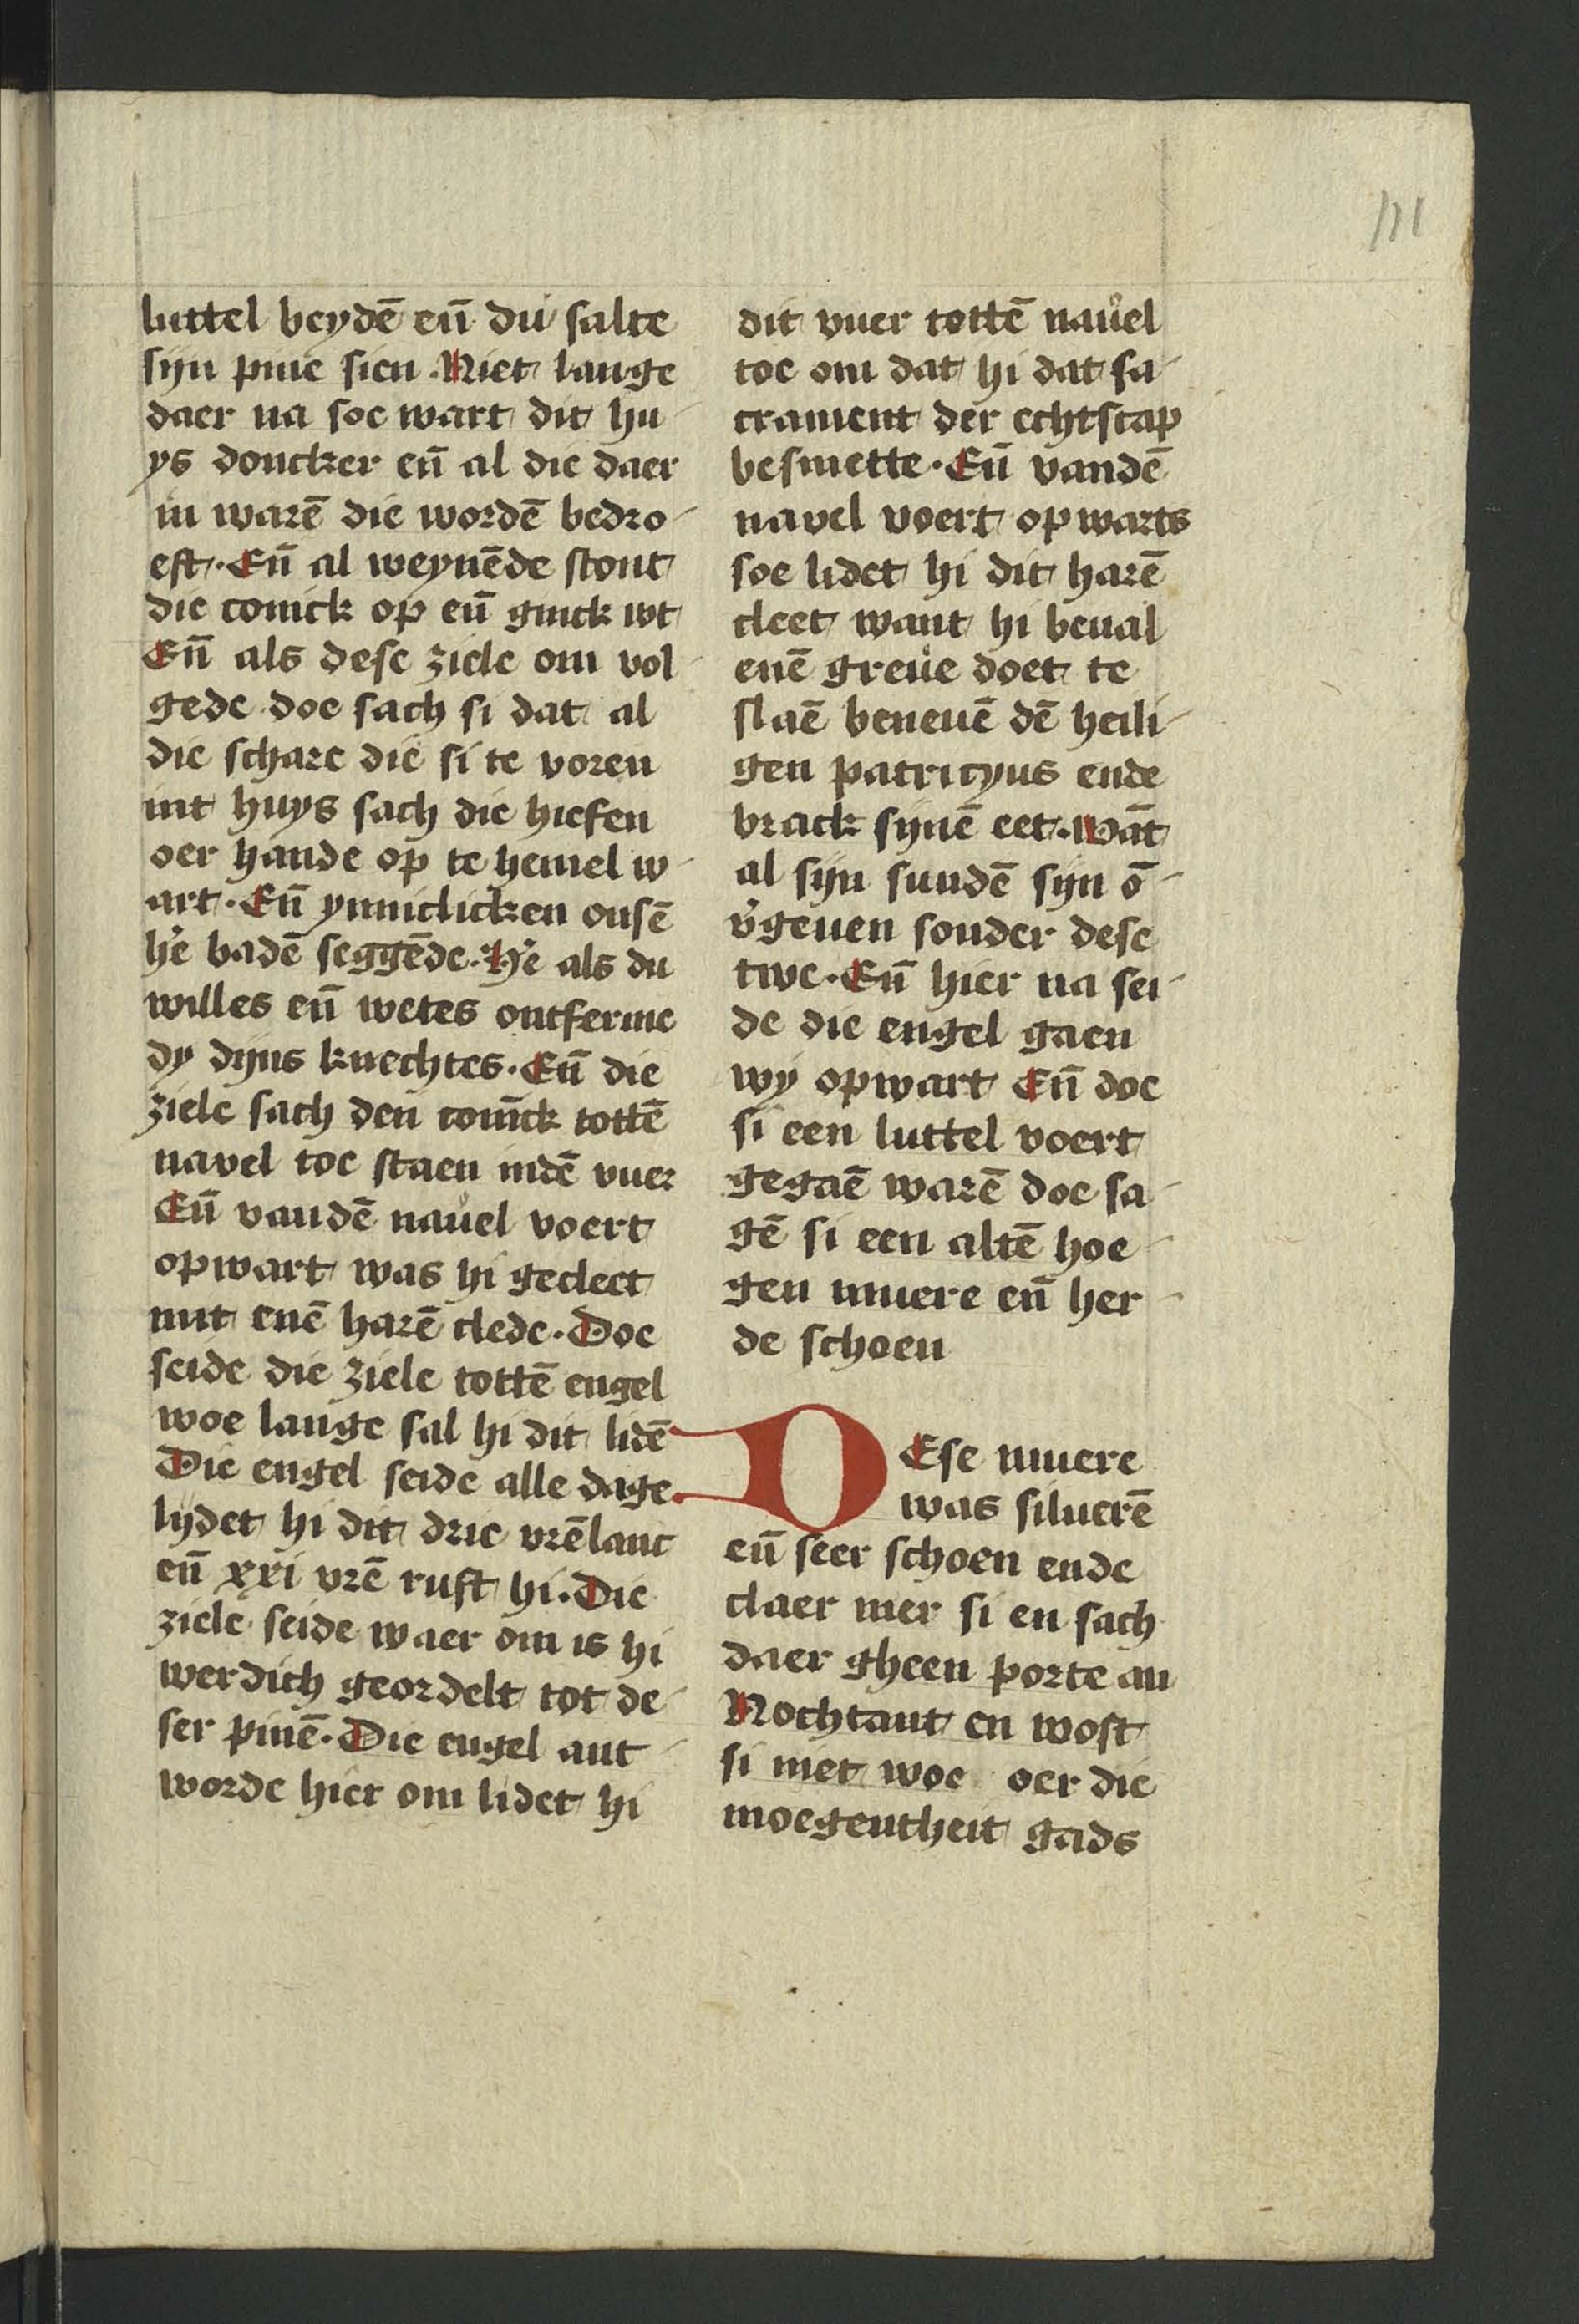 111
luttel beydē eñ du salte
sijn pine sien. Niet lange
daer na soe wart dit hu-
ys doncker eñ al die daer
in warē die wordē bedro-
eft. Eñ al weynēde stont
die conick op eñ ginck wt
Eñ als dese ziele om vol-
gede doe sach si dat al
die schare die si te voren
int huys sach die hiefen
oer hande op te hemel w-
art. Eñ ynniclicken onsē
h'e badē seggēde. H'e als du
willes eñ wetes ontferme
dy dijns knechtes. Eñ die
ziele sach den conīck tottē
navel toe staen indē vuer
Eñ vandē nauel voert
opwart was hi gecleet
mit enē harē clede. Doe
seide die ziele tottē engel
woe lange sal hi dit lidē
Die engel seide alle dage
lydet hi dit drie vrē lanc
eñ xxi vrē rust hi. Die
ziele seide waer om is hi
werdich geordelt tot de-
ser pinē. Die engel ant-
worde hier om lidet hi
dit vuer tottē nauel
toe om dat hi dat sa-
crament der echtscap
besmette. Eñ vandē
navel voert opwarts
soe lidet hi dit harē
cleet want hi beual
enē greue doet te
slaē beneuē dē heili-
gen patricyus ende
brack sijnē eet. Wāt
al sijn sundē sijn ō-
v'geuen sonder dese
twe. Eñ hier na sei-
de die engel gaen
wy opwart Eñ doe
si een luttel voert
gegaē warē doe sa-
gē si een altē hoe-
gen muere eñ her-
de schoen
DEse muere
was siluerē
eñ seer schoen ende
claer mer si en sach
daer gheen porte an
Nochtant en wost
si niet woe oer die
moegentheit gads